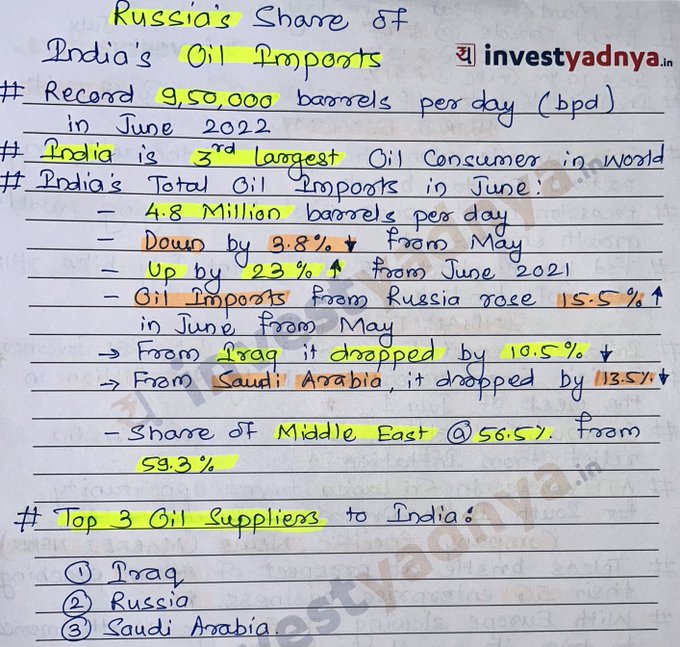 Russia's Share of
India's Oil Imports
investyadnya.in
# Record 9,50,000 barrels per day (bpd)
in June 2022
# India is 3rd largest Oil Consumer in world
# India's Total Oil Imports in June:
- 4.8 Million barrels per day
- Down by 3.8% ↓ from May
- Up by 23% ↑ from June 2021
- Oil Imports from Russia rose 15.5% ↑
in June from May
→ From Iraq it dropped by 10.5% ↓
→ From Saudi Arabia, it dropped by 13.5% ↓
- Share of Middle East @ 56.5% from
59.3%
# Top 3 Oil Suppliers to India:
① Iraq
② Russia
③ Saudi Arabia.
investyadnya.in
investyadnya.in